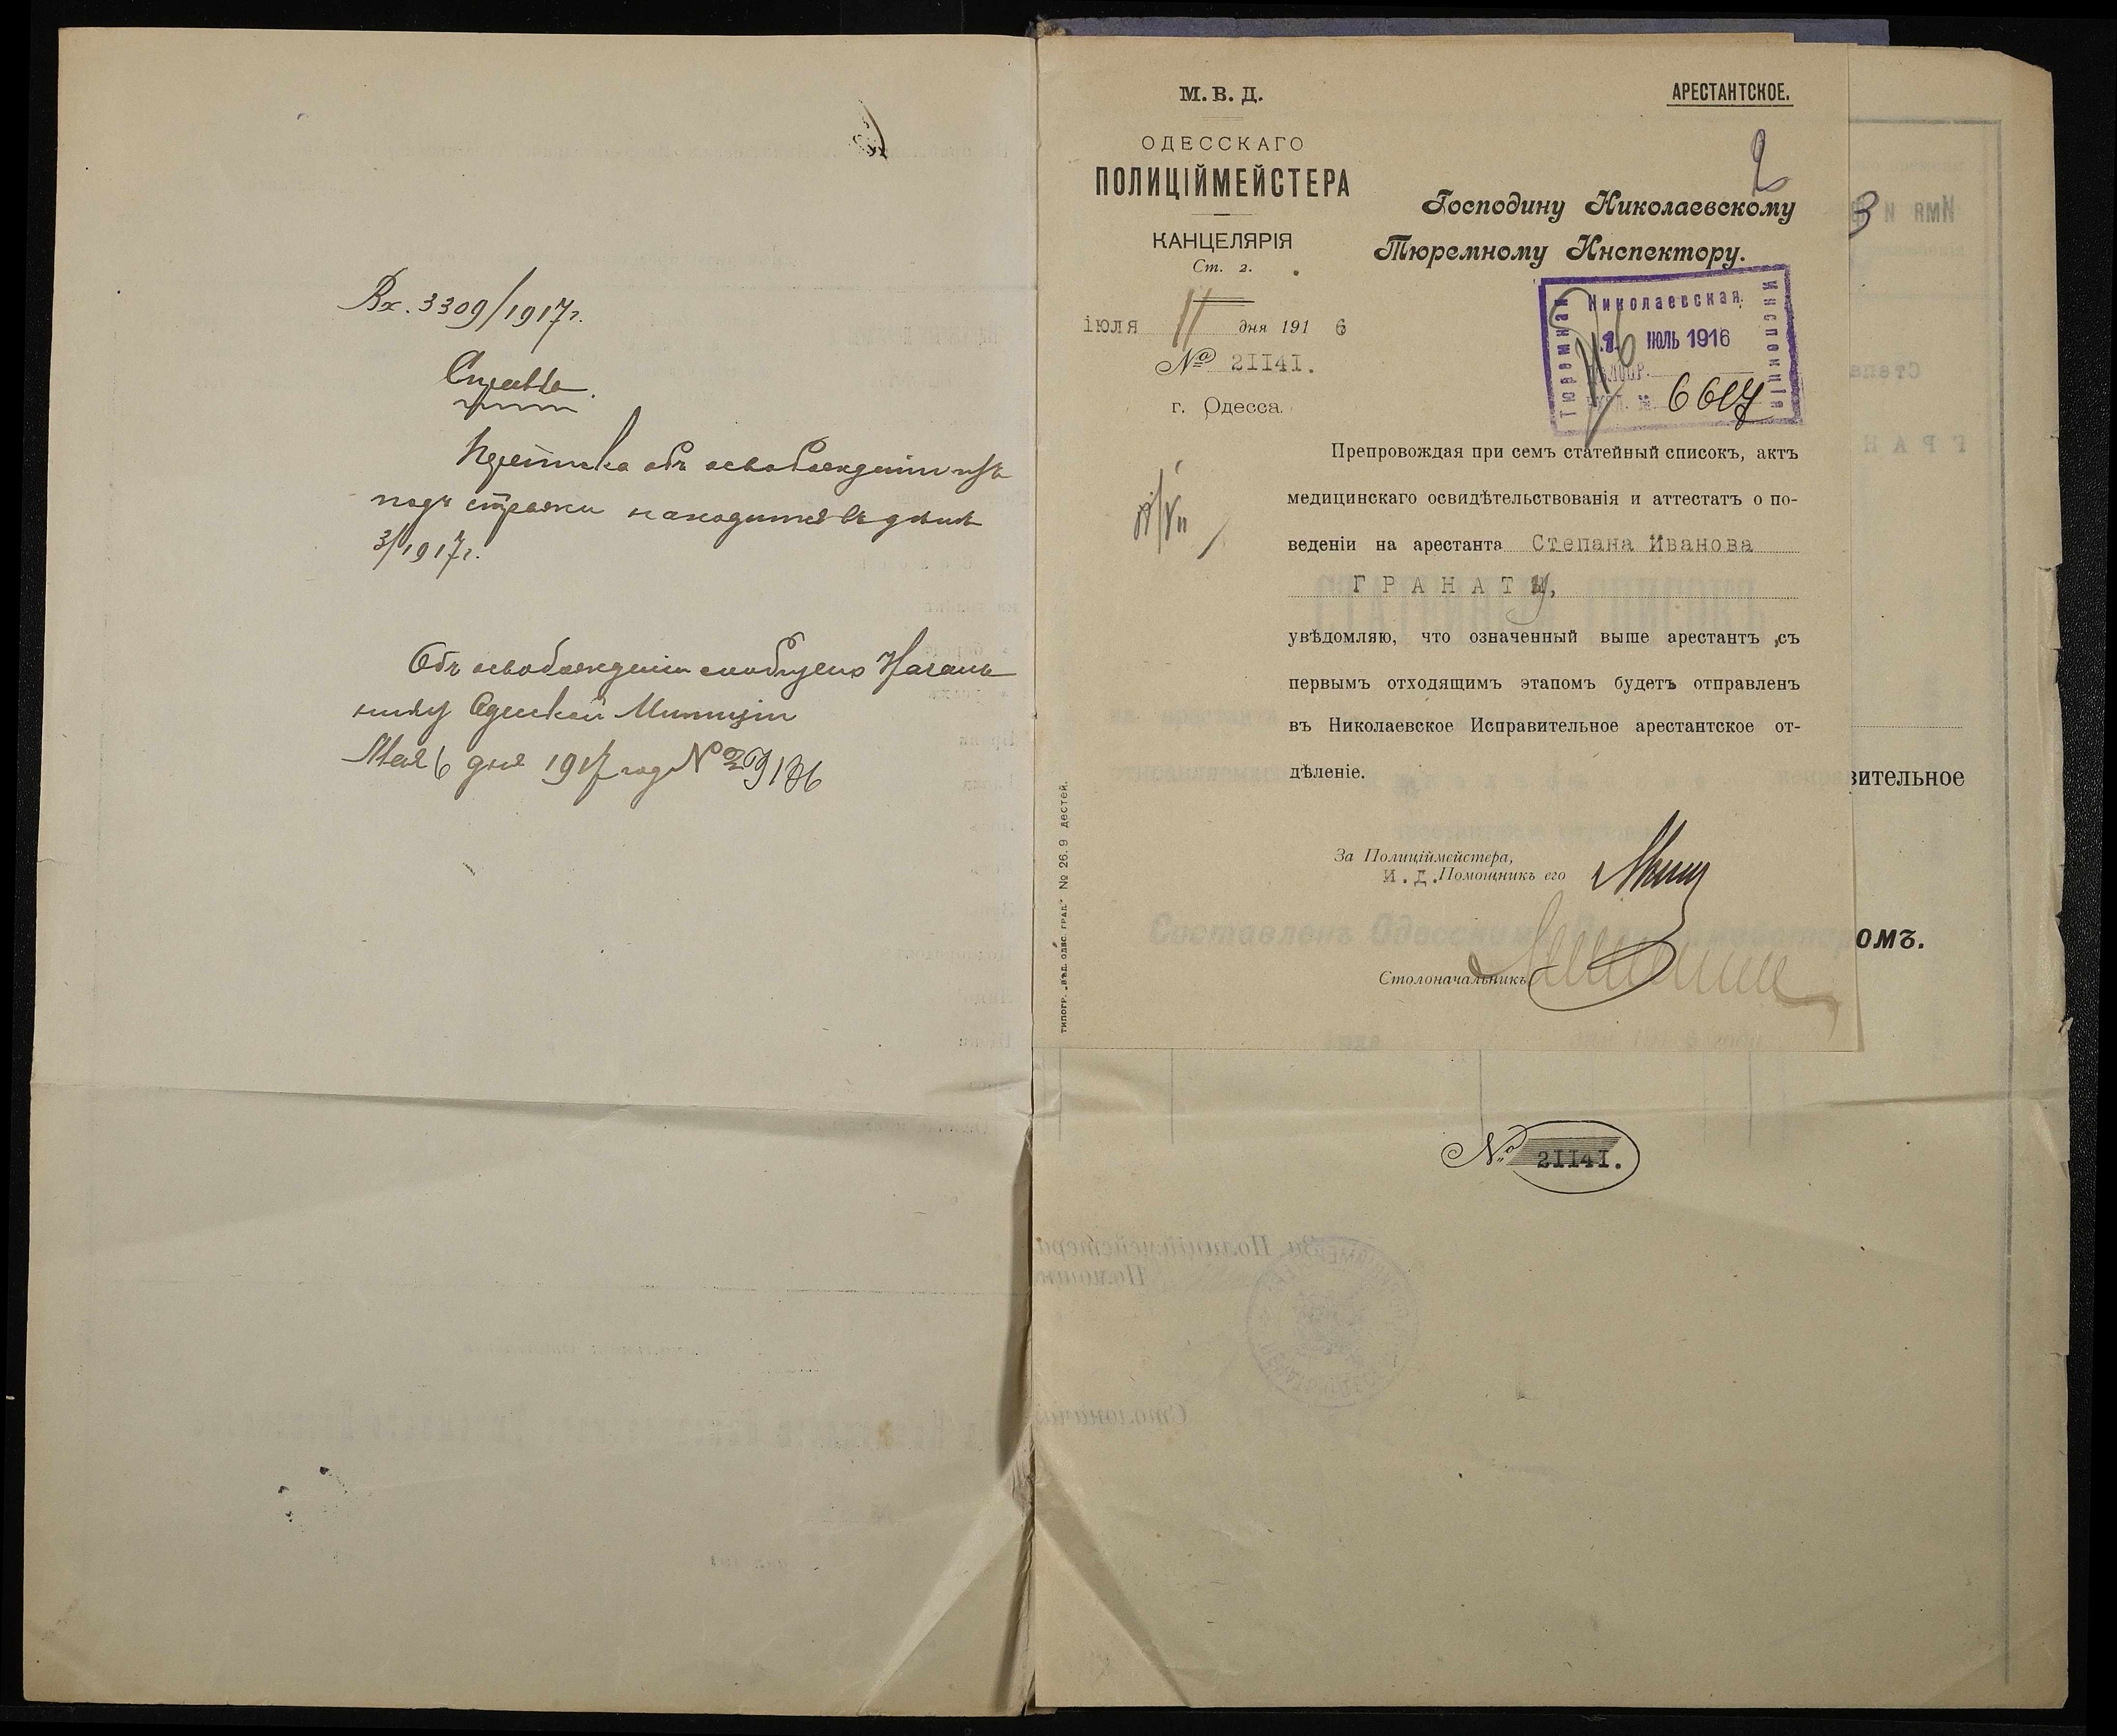 Вх. 3309/1917 г.
Справка.
Переписка объ освобожденіи изъ
подъ стражи находится въ дѣлѣ
3/1917 г.
Объ освобожденіи сообщено Началь
нику Одесской Милиціи
Мая 6 дня 1917 года №
М. В. Д.
ОДЕССКАГО
ПОЛИЦІЙМЕЙСТЕРА
КАНЦЕЛЯРІЯ
Ст. 2.
іюля 11 дня 191 6
№ 21141.
г. Одесса.
АРЕСТАНТСКОЕ.
2
Господину Николаевскому
Тюремному Инспектору.
Николаевская
Тюремная
Инспекція
ІЮЛЬ 1916
Препровождая при семъ статейный списокъ, актъ
медицинскаго освидѣтельствованія и аттестатъ о по-
веденіи на арестанта Степана Иванова
ГРАНАТЫ,
увѣдомляю, что означенный выше арестантъ съ
первымъ отходящимъ этапомъ будетъ отправленъ
въ Николаевское Исправительное арестантское от-
дѣленіе.
За Полиціймейстера,
И.д. Помощникъ его
Столоначальникъ
типогр. „вѣд. одес. град.“ № 26. 9 дестей.
3
вительное
омъ.
№ 21141.